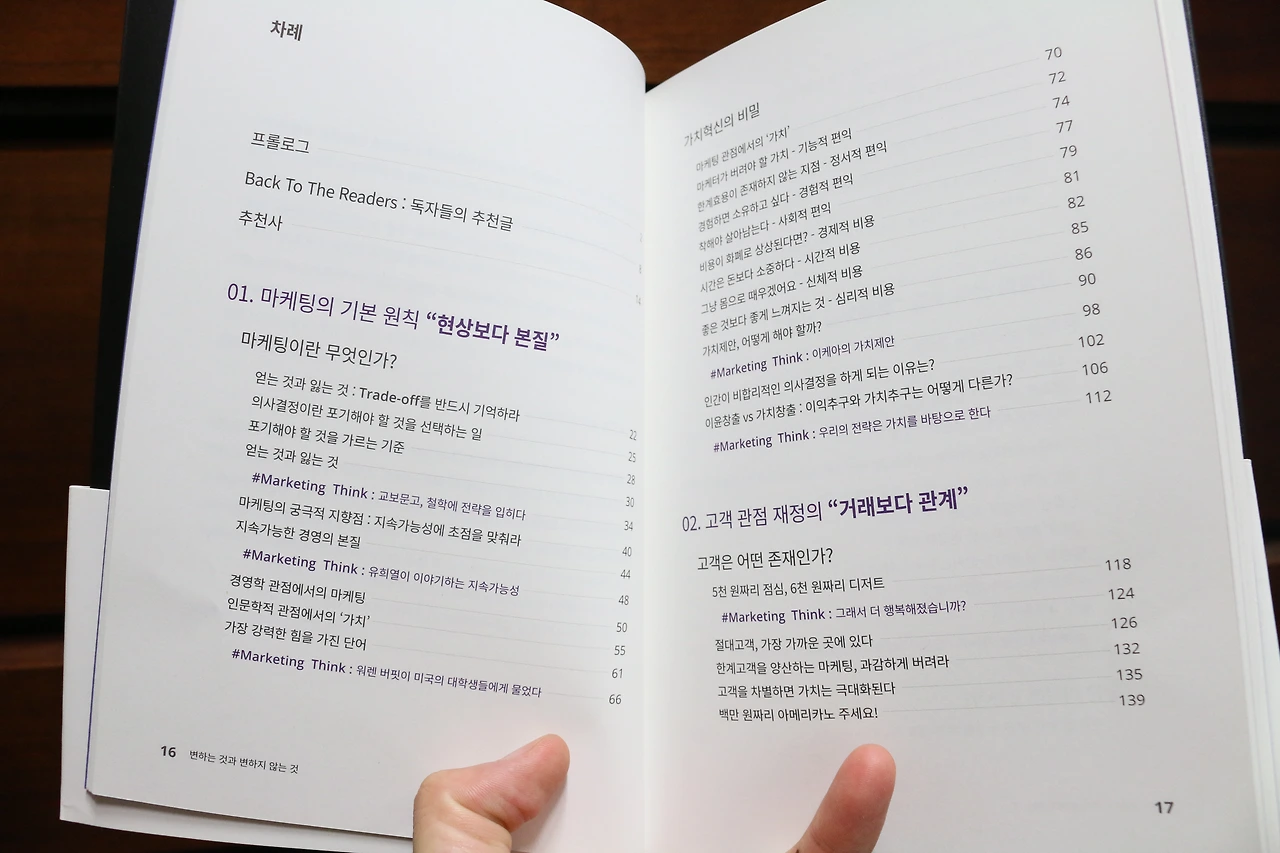 차례
프롤로그
Back To The Readers : 독자들의 추천글
추천사
01. 마케팅의 기본 원칙 “현상보다 본질”
마케팅이란 무엇인가?
얻는 것과 잃는 것 : Trade-off를 반드시 기억하라 22
의사결정이란 포기해야 할 것을 선택하는 일 25
포기해야 할 것을 가르는 기준 28
얻는 것과 잃는 것 30
#Marketing Think : 교보문고, 철학에 전략을 입히다 34
마케팅의 궁극적 지향점 : 지속가능성에 초점을 맞춰라 40
지속가능한 경영의 본질 44
#Marketing Think : 유희열이 이야기하는 지속가능성 48
경영학 관점에서의 마케팅 50
인문학적 관점에서의 ‘가치’ 55
가장 강력한 힘을 가진 단어 61
#Marketing Think : 워렌 버핏이 미국의 대학생들에게 물었다 66
16 변하는 것과 변하지 않는 것
가치혁신의 비밀
마케팅 관점에서의 ‘가치’ 70
마케터가 버려야 할 가치 - 기능적 편익 72
한계효용이 존재하지 않는 지점 - 정서적 편익 74
경험하면 소유하고 싶다 - 경험적 편익 77
착해야 살아남는다 - 사회적 편익 79
비용이 화폐로 상상된다면? - 경제적 비용 81
시간은 돈보다 소중하다 - 시간적 비용 82
그냥 몸으로 때우겠어요 - 신체적 비용 85
좋은 것보다 좋게 느껴지는 것 - 심리적 비용 86
가치제안, 어떻게 해야 할까? 90
#Marketing Think : 이케아의 가치제안 98
인간이 비합리적인 의사결정을 하게 되는 이유는? 102
이윤창출 vs 가치창출 : 이익추구와 가치추구는 어떻게 다른가? 106
#Marketing Think : 우리의 전략은 가치를 바탕으로 한다 112
02. 고객 관점 재정의 “거래보다 관계”
고객은 어떤 존재인가?
5천 원짜리 점심, 6천 원짜리 디저트 118
#Marketing Think : 그래서 더 행복해졌습니까? 124
절대고객, 가장 가까운 곳에 있다 126
한계고객을 양산하는 마케팅, 과감하게 버려라 132
고객을 차별하면 가치는 극대화된다 135
백만 원짜리 아메리카노 주세요! 139
17